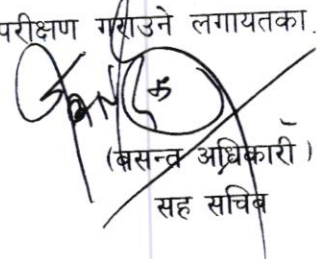 परीक्षण गराउने लगायतका.
(बसन्त अधिकारी)
सह सचिव